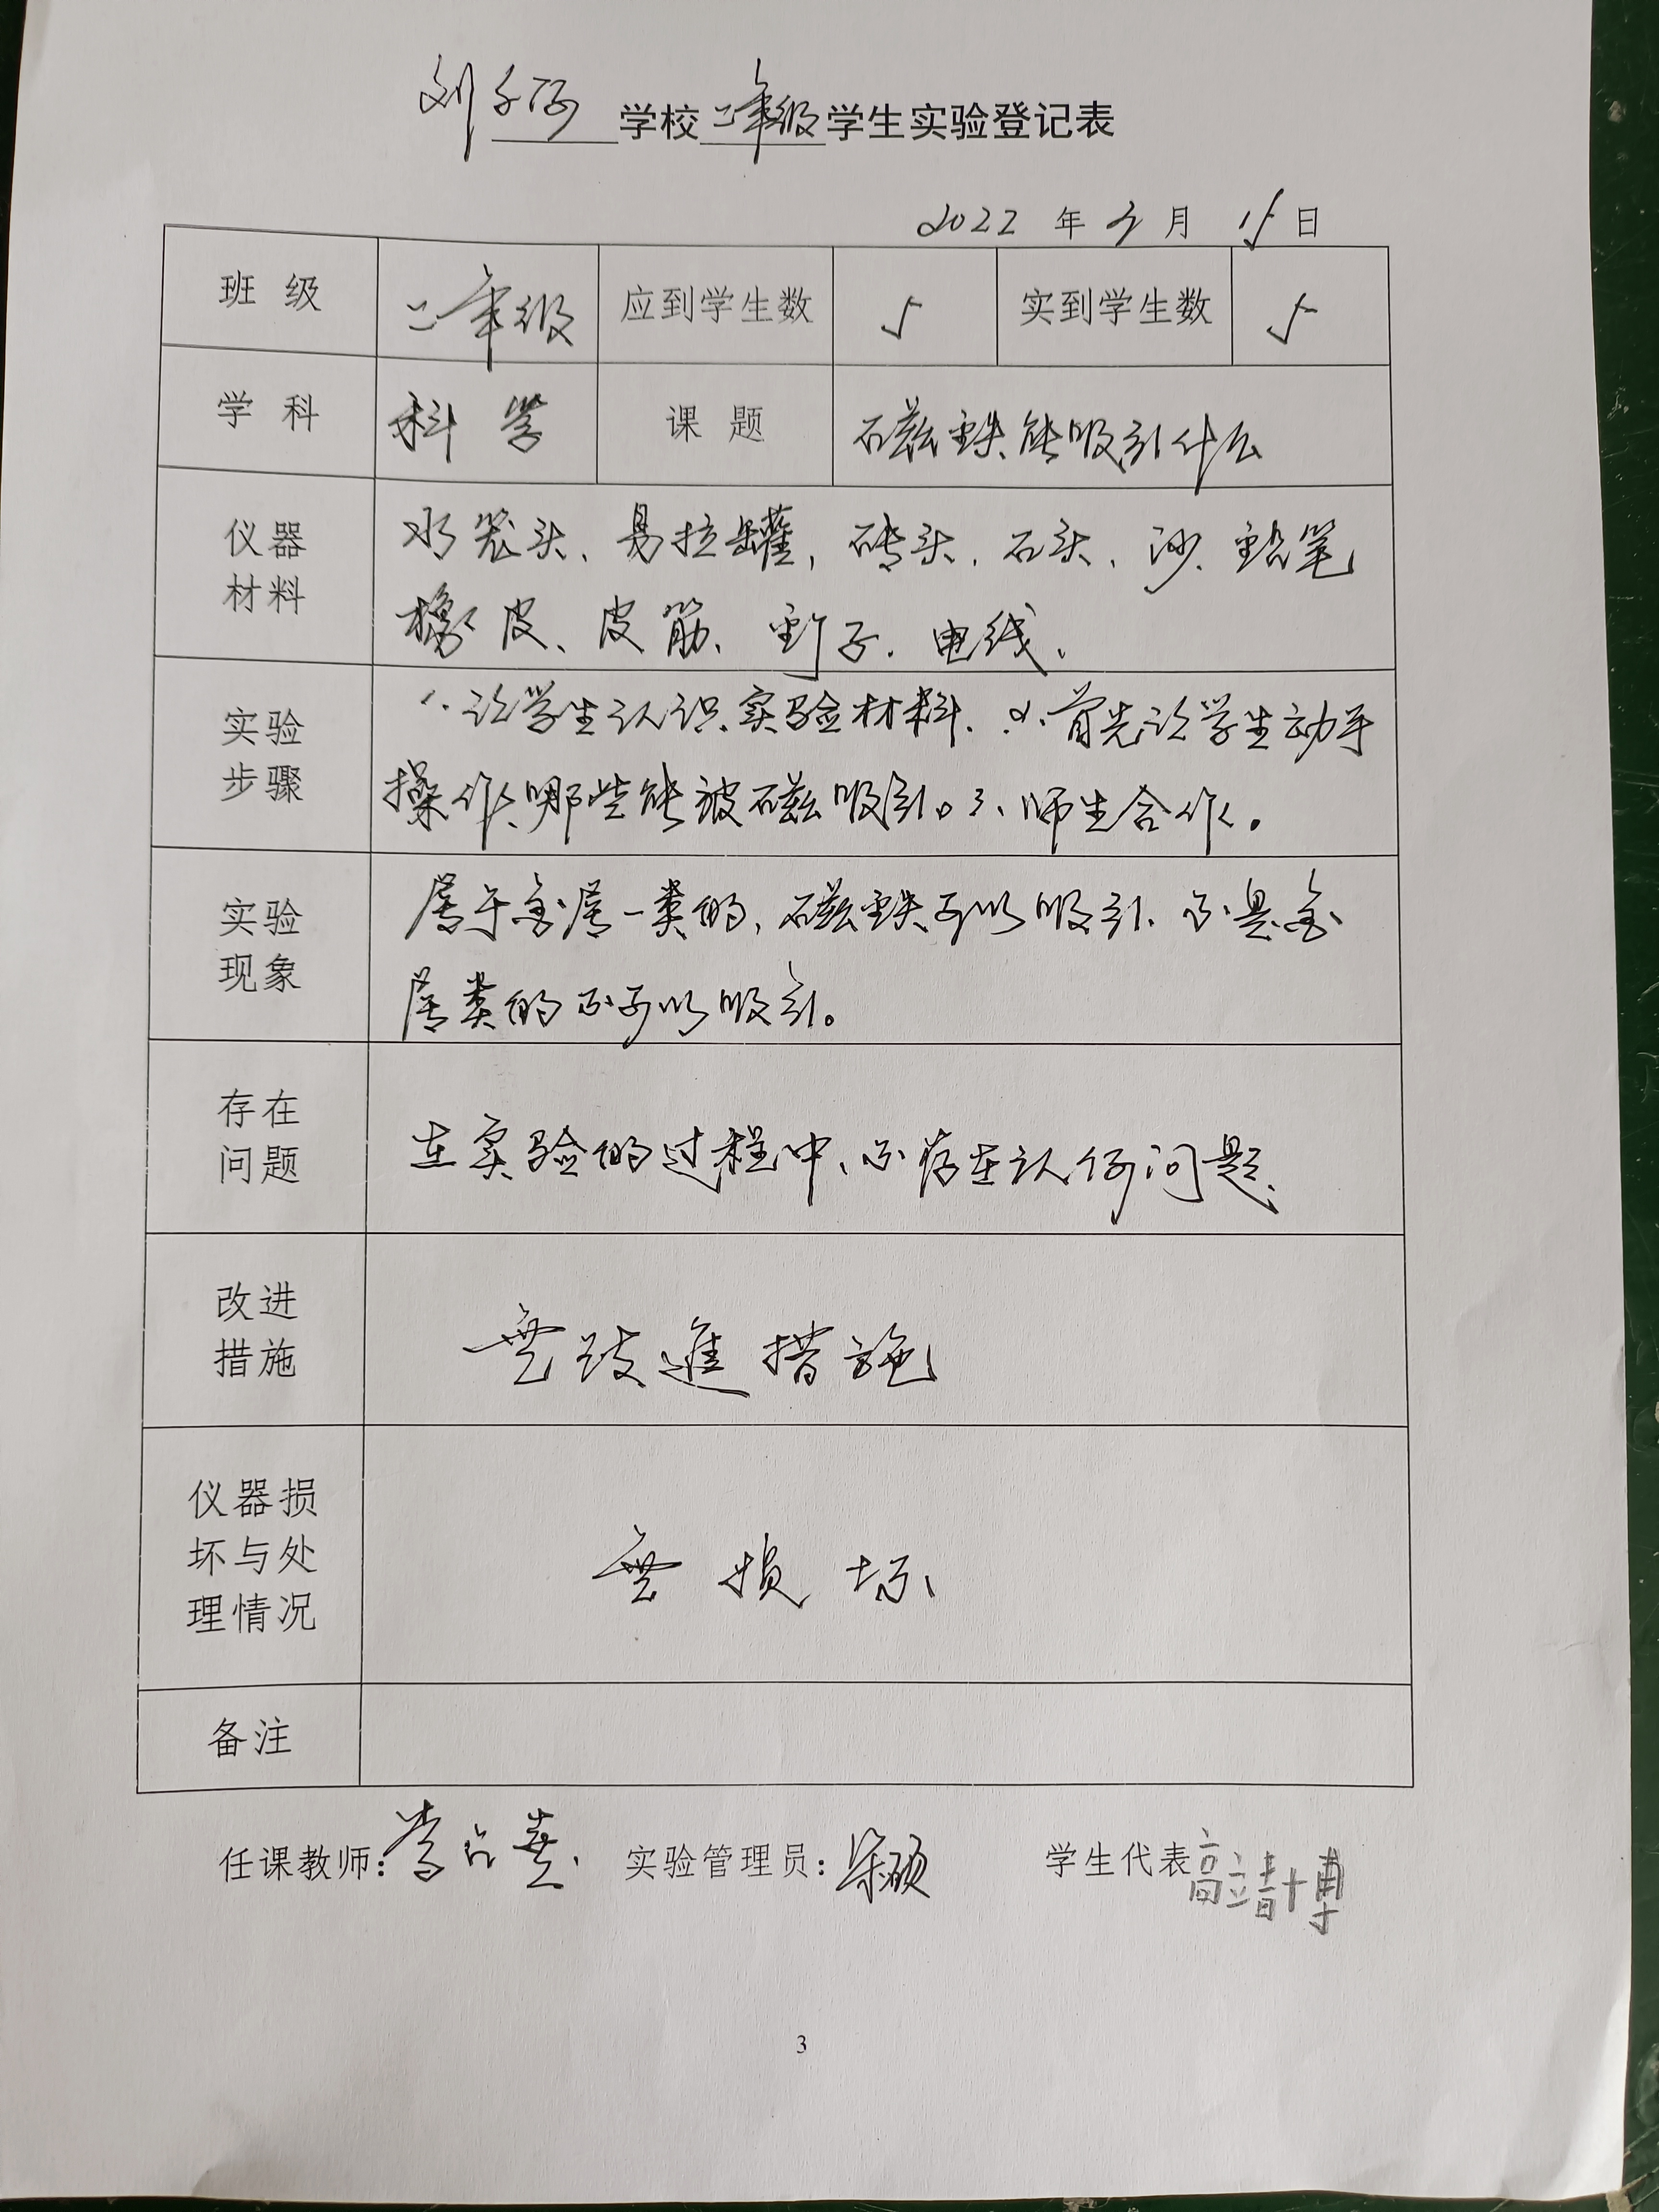 刘 学校 二年级 学生实验登记表
2022 年 3 月 15 日
班 级 二年级 应到学生数 5 实到学生数 5
学 科 科 学 课 题 磁铁能吸引什么
仪器 水笼头、易拉罐,砖头、石头、沙、铅笔
材料 橡皮、皮筋、钉子、电线、
实验 1、让学生认识实验材料、2、首先让学生动手
步骤 操作、哪些能被磁吸引。3、师生合作。
实验 属于金属一类的,磁铁可以吸引、不是金
现象 属类的不可以吸引。
存在
问题 在实验的过程中、不存在认何问题、
改进
措施 無改進措施
仪器损
坏与处 無损坏
理情况
备注
任课教师: 实验管理员: 学生代表 高靖博
3